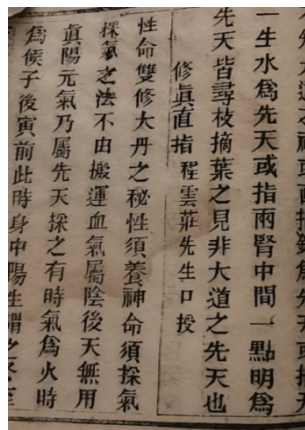 一生水爲先天或指兩腎中間一點明爲
先天皆尋枝摘葉之見非大道之先天也
修眞直指 程雲莊先生口授
性命雙修大丹之秘性須養神命須採氣
採氣之法不由搬運血氣屬陰後天無用
眞陽元氣乃屬先天採之有時氣爲火時
爲候子後寅前此時身中陽生謂之